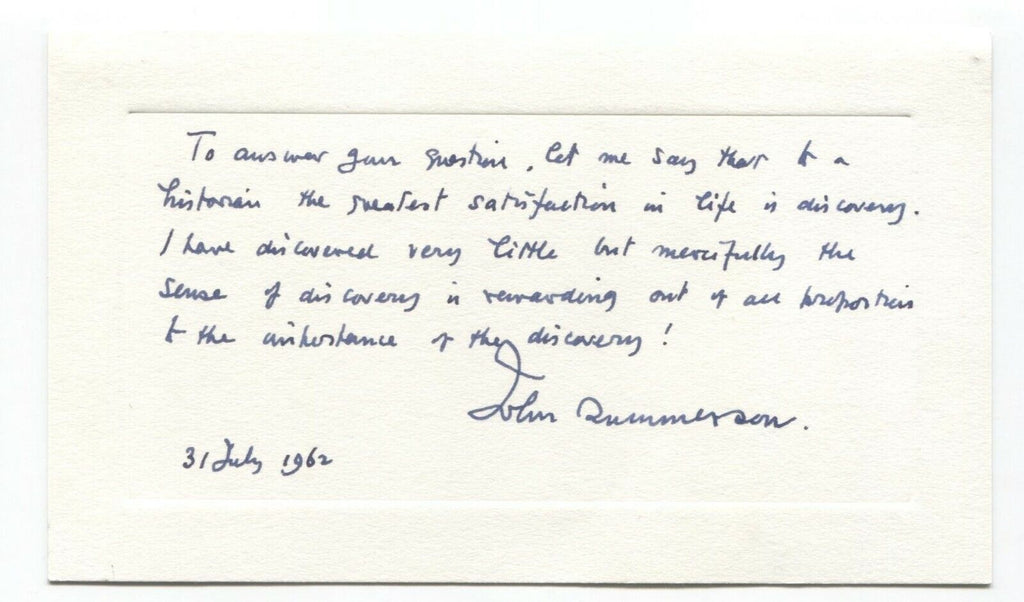 To answer your question, let me say that to a
historian the greatest satisfaction in life is discovery.
I have discovered very little but mercifully the
sense of discovery is rewarding out of all proportion
to the importance of the discovery!
John Summerson.
31 July 1962